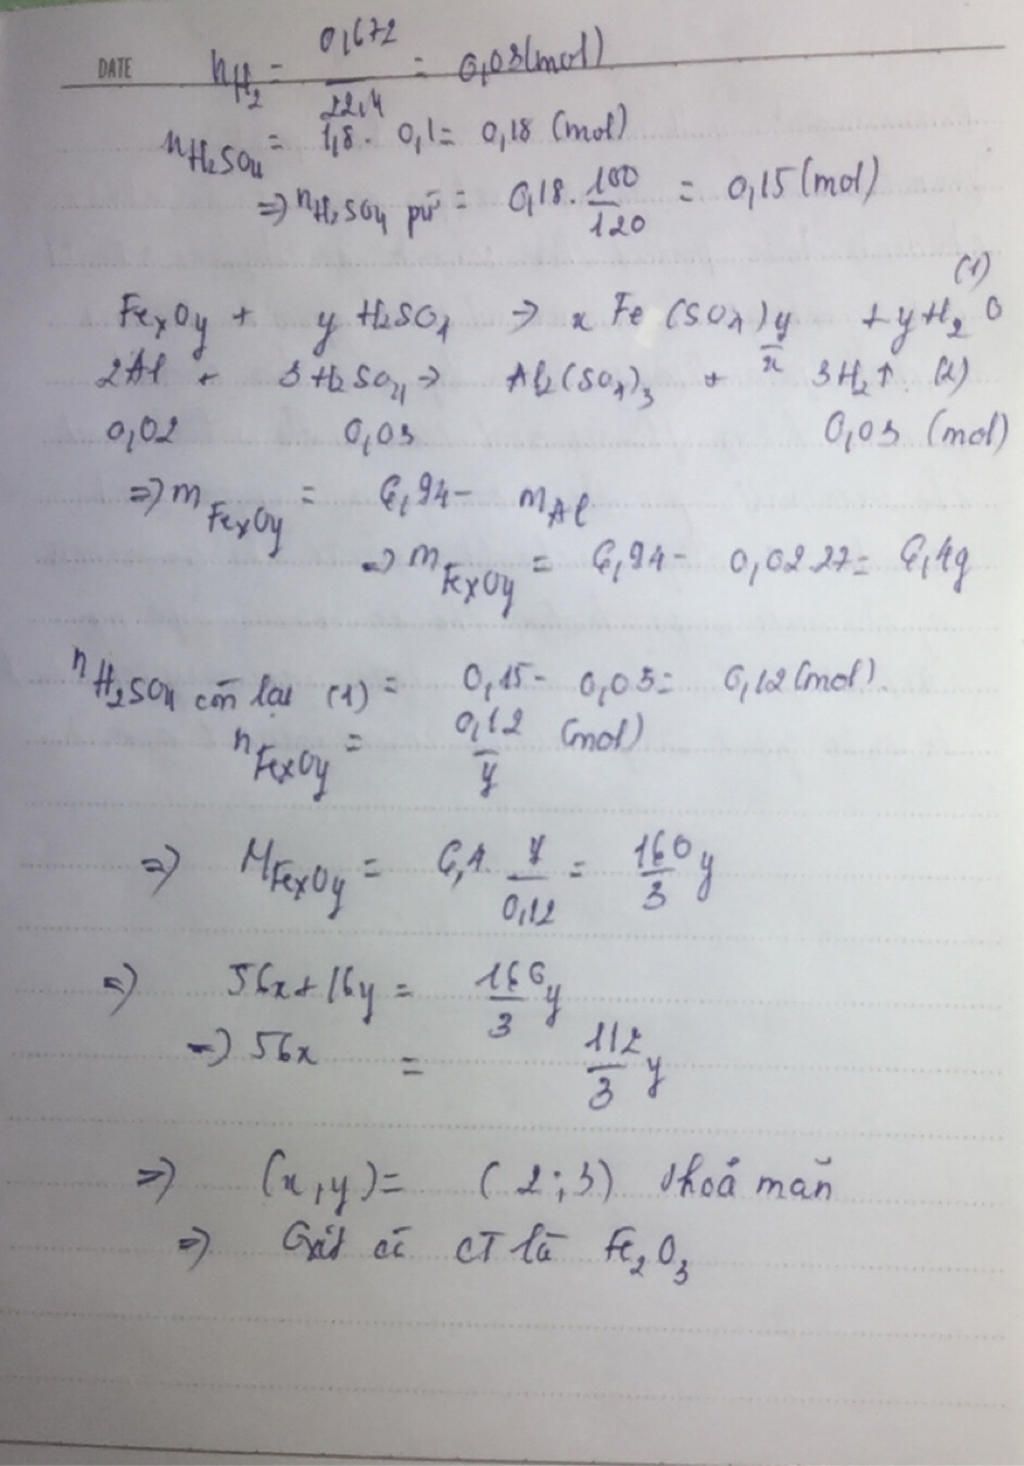 DATE
nH₂ = 0,672/22,4 = 0,03(mol)
nH₂SO₄ = 1,8 . 0,1 = 0,18 (mol)
⇒ nH₂SO₄ pứ = 0,18 . 100/120 = 0,15 (mol)
(1)
FexOy + y H₂SO₄ → x Fe (SO₄)y/x + yH₂O
2Al + 3H₂SO₄ → Al₂(SO₄)₃ + 3H₂↑ (2)
0,02 0,03 0,03 (mol)
⇒ mFexOy = 6,94 - mAl
⇒ mFexOy = 6,94 - 0,02.27 = 6,4g
nH₂SO₄ còn lại (1) = 0,15 - 0,03 = 0,12 (mol).
nFexOy = 0,12/y (mol)
⇒ MFexOy = 6,4 . y/0,12 = 160/3 y
⇒ 56x + 16y = 160/3 y
⇒ 56x = 112/3 y
⇒ (x,y) = (2;3) thoả mãn
⇒ CT là Fe₂O₃